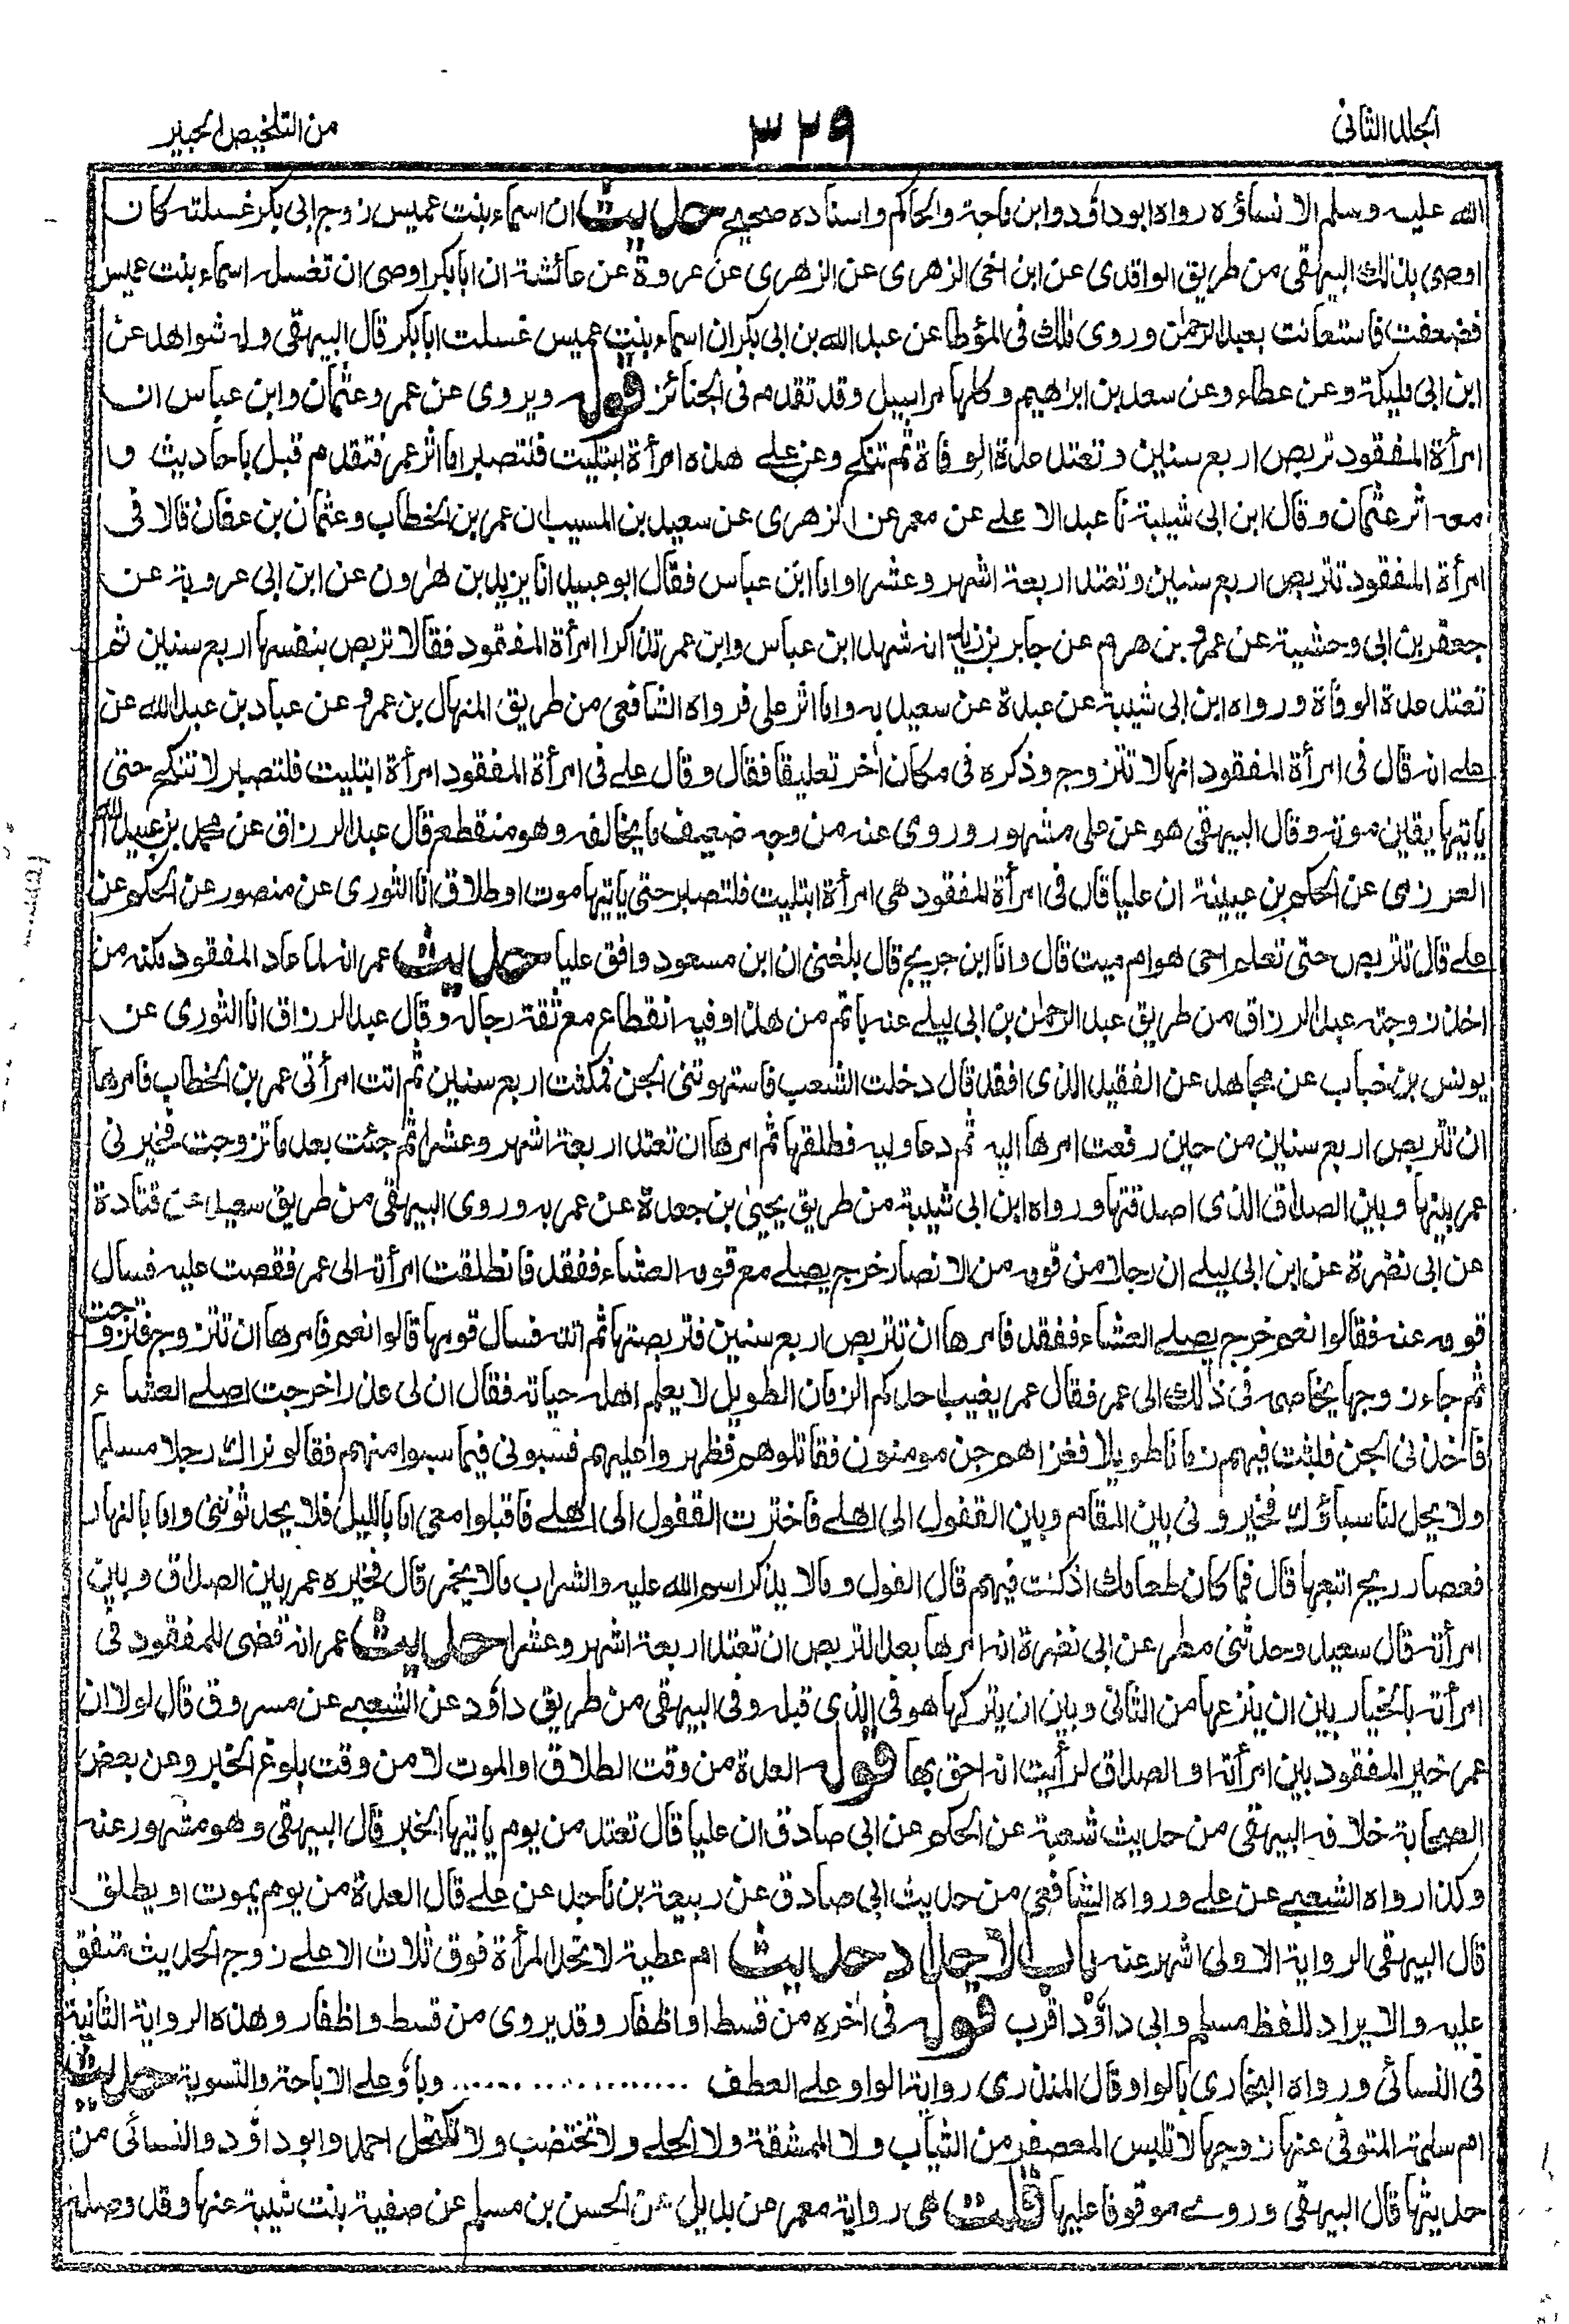 المجلد الثانى
٣٢٩
من التلخيص الحبير
الله عليه وسلم الا نساؤه رواه ابو داؤد وابن ماجة والحاكم واسناده صحيح حديث ان اسماء بنت عميس زوج ابى بكر غسلته كان
اوصى بذلك البيهقى من طريق الواقدى عن ابن اخى الزهرى عن الزهرى عن عروة عن عائشة ان ابا بكر اوصى ان تغسله اسماء بنت عميس
فضعفت فاستعانت بعبد الرحمٰن وروى ذلك فى المؤطا عن عبد الله بن ابى بكر ان اسماء بنت عميس غسلت ابا بكر قال البيهقى وله شواهد عن
ابن ابى مليكة وعن عطاء وعن سعد بن ابرٰهيم وكلها مراسيل وقد تقدم فى الجنائز قوله ويروى عن عمر وعثمان وابن عباس ان
امرأة المفقود تربص اربع سنين وتعتد عدة الوفاة ثم تنكح وعن علے هذه امرأة ابتليت فلتصبر اما اثر عمر فتقدم قبل باحاديث و
معه اثر عثمان وقال ابن ابى شيبة نا عبد الاعلے عن معمر عن الزهرى عن سعيد بن المسيب ان عمر بن الخطاب وعثمان بن عفان قالا فى
امرأة المفقود تتربص اربع سنين وتعتد اربعة اشهر وعشرا واما ابن عباس فقال ابو عبيد انا يزيد بن هٰرون عن ابن ابى عروبة عن
جعفر بن ابى وحشية عن عمرو بن هرم عن جابر بن زيد انه شهد ابن عباس وابن عمر تذاكرا امرأة المفقود فقالا تربص بنفسها اربع سنين ثم
تعتد عدة الوفاة ورواه ابن ابى شيبة عن عبدة عن سعيد به واما اثر على فرواه الشافعى من طريق المنهال بن عمرو عن عباد بن عبد الله عن
علے انه قال فى امرأة المفقود انها لا تتزوج وذكره فى مكان اٰخر تعليقا فقال وقال علے فى امرأة المفقود امرأة ابتليت فلتصبر لا تنكح حتى
ياتيها يقين موته وقال البيهقى هو عن على مشهور وروى عنه من وجه ضعيف ما يخالفه وهو منقطع قال عبد الرزاق عن محمد بن عبيد الله
العرزمى عن الحكم بن عيينة ان عليا قال فى امرأة المفقود هى امرأة ابتليت فلتصبر حتى ياتيها موت او طلاق انا الثورى عن منصور عن الحكم عن
علے قال تتربص حتى تعلم احى هو ام ميت قال وانا ابن جريج قال بلغنى ان ابن مسعود وافق عليا حديث عمر انه لما عاد المفقود مكنه من
اخذ زوجته عبد الرزاق من طريق عبد الرحمٰن بن ابى ليلے عنه باتم من هذا وفيه انقطاع مع ثقة رجاله وقال عبد الرزاق انا الثورى عن
يونس بن خباب عن مجاهد عن الفقيد الذى افقد قال دخلت الشعب فاستهوتنى الجن فمكثت اربع سنين ثم اتت امرأتى عمر بن الخطاب فامرها
ان تتربص اربع سنين من حين رفعت امرها اليه ثم دعا وليه فطلقها ثم امرها ان تعتد اربعة اشهر وعشرا ثم جئت بعد ما تزوجت فخيرنى
عمر بينها وبين الصداق الذى اصدقتها ورواه ابن ابى شيبة من طريق يحيٰى بن جعدة عن عمر به وروى البيهقى من طريق سعيد عن قتادة
عن ابى نضرة عن ابن ابى ليلے ان رجلا من قومه من الانصار خرج يصلے مع قومه العشاء ففقد فانطلقت امرأته الى عمر فقصت عليه فسال
قومه عنه فقالوا نعم خرج يصلے العشاء ففقد فامرها ان تتربص اربع سنين فتربصتها ثم اتته فسال قومها قالوا نعم فامرها ان تتزوج فتزوجت
ثم جاء زوجها يخاصمه فى ذلك الى عمر فقال عمر يغيب احدكم الزمان الطويل لا يعلم اهله حياته فقال ان لى عذرا خرجت اصلے العشاء
فاخذنى الجن فلبثت فيهم زمانا طويلا فغزاهم جن مومنون فقاتلوهم فظهروا عليهم فسبونى فيما سبوا منهم فقالو نراك رجلا مسلما
ولا يحل لنا سباؤك فخيرونى بين المقام وبين القفول الى اهلے فاخترت القفول الى اهلے فاقبلوا معى اما بالليل فلا يحدثوننى واما بالنهار
فعصار ريح اتبعها قال فما كان طعامك اذ كنت فيهم قال الفول ومالا يذكر اسم الله عليه والشراب مالا يخمر قال فخيره عمر بين الصداق وبين
امرأته قال سعيد وحدثنى مطر عن ابى نضرة انه امرها بعد التربص ان تعتد اربعة اشهر وعشرا حديث عمر انه قضى للمفقود فى
امرأته بالخيار بين ان ينزعها من الثانى وبين ان يتركها هو فى الذى قبله وفى البيهقى من طريق داؤد عن الشعبے عن مسروق قال لولا ان
عمر خير المفقود بين امرأته او الصداق لرأيت انه احق بها قوله العدة من وقت الطلاق او الموت لا من وقت بلوغ الخبر وعن بعض
الصحابة خلافه البيهقى من حديث شعبة عن الحكم عن ابى صادق ان عليا قال تعتد من يوم ياتيها الخبر قال البيهقى وهو مشهور عنه
وكذا رواه الشعبے عن علے ورواه الشافعى من حديث ابى صادق عن ربيعة بن ناجد عن علے قال العدة من يوم يموت او يطلق
قال البيهقى الرواية الاولى اشهر عنه باب الاحداد حديث ام عطية لا تحد المرأة فوق ثلاث الا علے زوج الحديث متفق
عليه والايراد للفظ مسلم وابى داؤد اقرب قوله فى اٰخره من قسط او اظفار وقد يروى من قسط واظفار وهذه الرواية الثانية
فى النسائى ورواه البخارى بالواو قال المنذرى رواية الواو علے العطف .................... وبأو علے الاباحة والتسوية حديث
ام سلمة المتوفى عنها زوجها لا تلبس المعصفر من الثياب ولا الممشقة ولا الحلے ولا تختضب ولا تكتحل احمد وابو داؤد والنسائى من
حديثها قال البيهقى وروے موقوفا عليها قلت هى رواية معمر عن بديل عن الحسن بن مسلم عن صفية بنت شيبة عنها وقد وصله